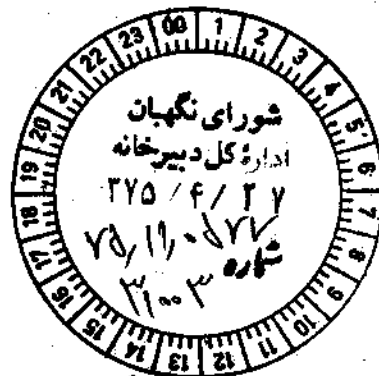 00 1 2 3 4 5 6 7 8 9 10 11 12 13 14 15 16 17 18 19 20 21 22 23
شورای نگهبان
ادارهٔ کل دبیرخانه
۳۷۵ / ۴ / ۲۷
شماره